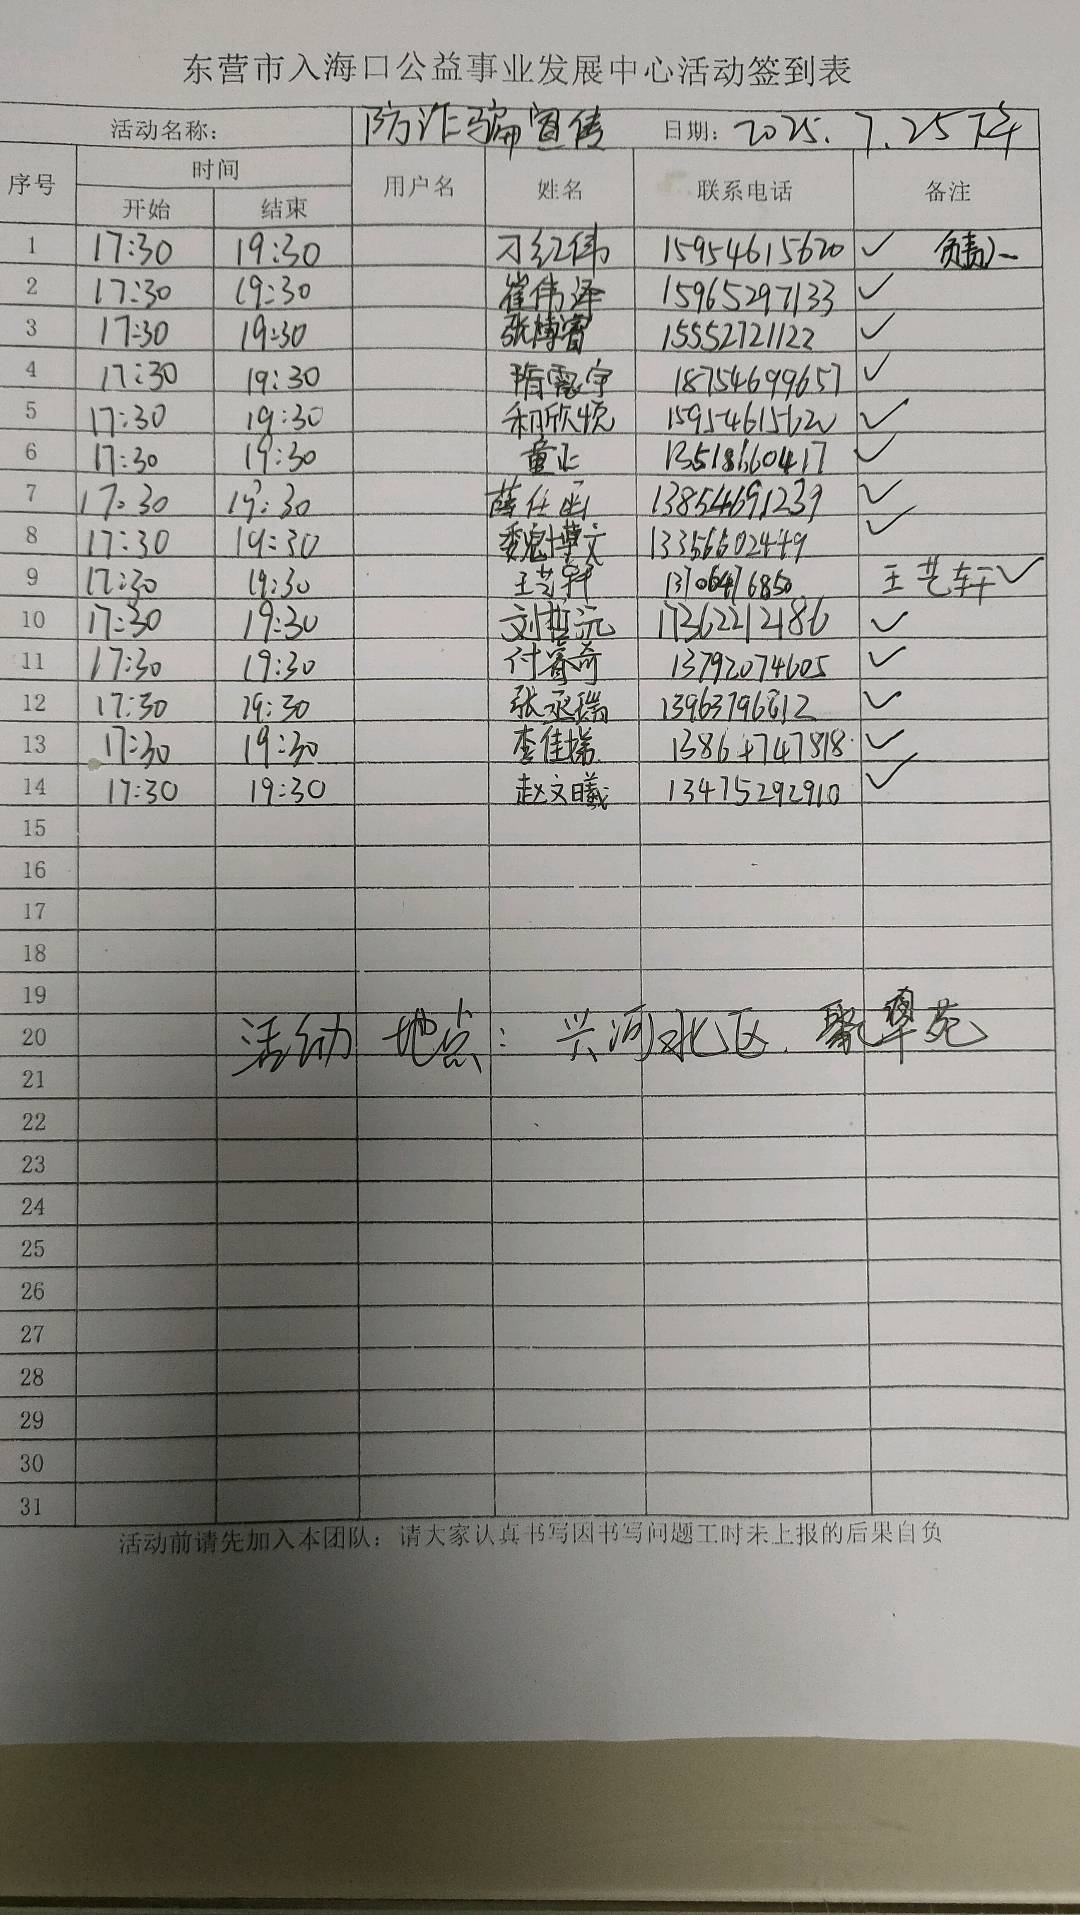 东营市入海口公益事业发展中心活动签到表
活动名称: 防诈骗宣传 日期: 2025.7.25下午
序号 时间 用户名 姓名 联系电话 备注
开始 结束
1 17:30 19:30 刁红伟 15954615620 ✓ 负责人
2 17:30 19:30 崔伟泽 15965297133 ✓
3 17:30 19:30 张博睿 15552721122 ✓
4 17:30 19:30 隋宇 18754699657 ✓
5 17:30 19:30 欣悦 15954615620 ✓
6 17:30 19:30 童 13518660417 ✓
7 17:30 19:30 薛任函 13854691239 ✓
8 17:30 19:30 魏博文 13356602449 ✓
9 17:30 19:30 王艺轩 13706476850 王艺轩 ✓
10 17:30 19:30 刘哲沅 17362212186 ✓
11 17:30 19:30 付睿奇 13792074605 ✓
12 17:30 19:30 张丞瑞 13963796812 ✓
13 17:30 19:30 李佳 13864747818 ✓
14 17:30 19:30 赵文曦 13475292910 ✓
15
16
17
18
19
20 活动地点: 兴河北区. 聚翠苑
21
22
23
24
25
26
27
28
29
30
31
活动前请先加入本团队; 请大家认真书写因书写问题工时未上报的后果自负